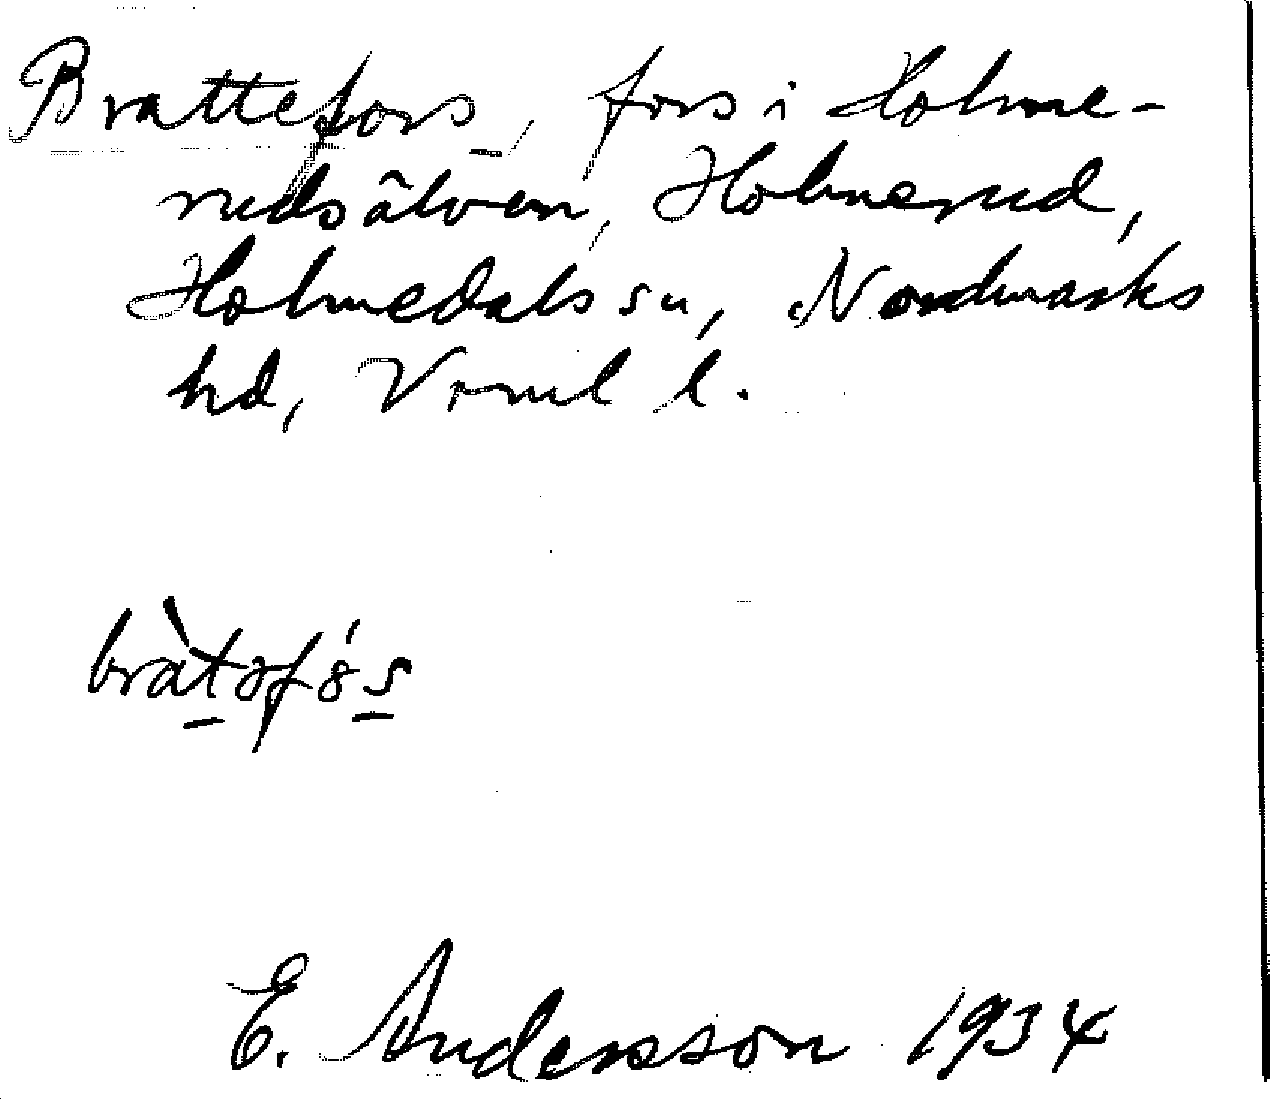 Brattefors, fors i Holme-
rudsälven, Holmerud,
Holmedals sn, Nordmarks
hd, Vrml l.
E. Andersson 1934